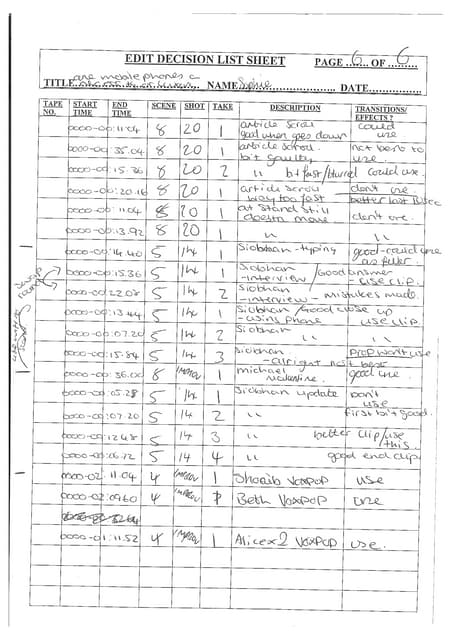 EDIT DECISION LIST SHEET PAGE 6 OF 6
are mobile phones a
TITLE NAME DATE
TAPE NO. START TIME END TIME SCENE SHOT TAKE DESCRIPTION TRANSITIONS/ EFFECTS ?
0000-00:11.04 8 20 1 article scroll good when goes down could use
0000-00:35.04 8 20 1 article scroll. bit faulty not best to use
0000-00:15.36 8 20 2 " bit fast/blurred could use.
0000-00:20.16 8 20 1 article scroll way too fast don't use.
better last 10 sec
0000-00:11.04 8 20 1 at stand still doesn't move don't use.
0000-00:13.92 8 20 1 " "
0000-00:14.40 5 14 1 Siobhan-typing good-could use as filler.
0000-00:15.36 5 14 1 Siobhan -interview /Good answer use clip.
0000-00:22.08 5 14 2 Siobhan -interview - mistakes made.
0000-00:13.44 5 14 1 Siobhan /Good close up -using phone use clip.
0000-00:07.20 5 14 2 Siobhan " "
0000-00:15.84 5 14 3 Siobhan -alright not best Prop won't use
0000-00:36.00 8 1 michael good use.
0000-00:05.28 5 14 1 Siobhan update don't use
0000-00:07.20 5 14 2 " first bit good.
0000-00:12.48 5 14 3 " better clip/use this.
0000-00:06.72 5 14 4 " good end clip
0000-02:11.04 4 IMPROV 1 Shoaib VOXPOP use
0000-02:09.60 4 IMPROV 1 Beth VOXPOP use
0000-01:11.52 4 IMPROV 1 Alice x2 VOXPOP use.